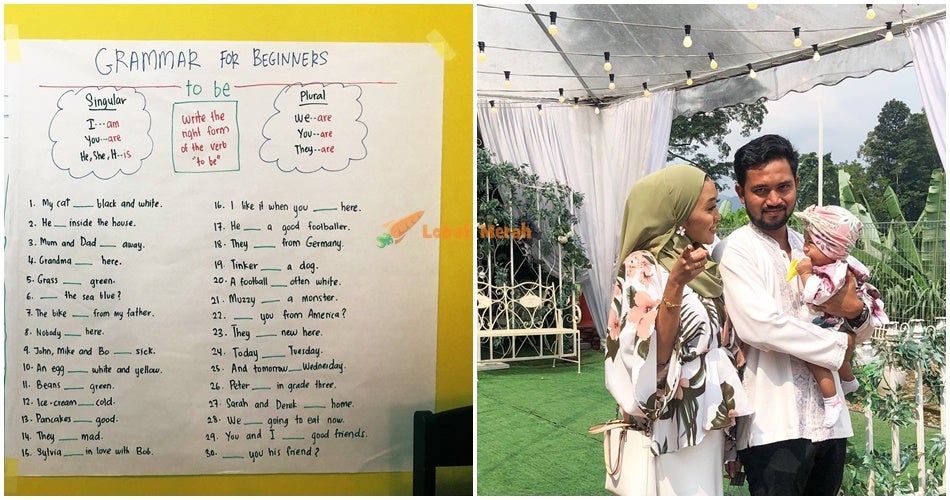 GRAMMAR FOR BEGINNERS
to be
Singular
I---am
You---are
He, She, It--is
Write the
right form
of the verb
"to be"
Plural
We--are
You---are
They--are
1. My cat ___ black and white.
2. He ___ inside the house.
3. Mum and Dad ___ away.
4. Grandma ___ here.
5. Grass ___ green.
6. ___ the sea blue?
7. The bike ___ from my father.
8. Nobody ___ here.
9. John, Mike and Bo ___ sick.
10. An egg ___ white and yellow.
11. Beans ___ green.
12. Ice-cream ___ cold.
13. Pancakes ___ good.
14. They ___ mad.
15. Sylvia ___ in love with Bob.
16. I like it when you ___ here.
17. He ___ a good footballer.
18. They ___ from Germany.
19. Tinker ___ a dog.
20. A football ___ often white.
21. Muzzy ___ a monster.
22. ___ you from America?
23. They ___ new here.
24. Today ___ Tuesday.
25. And tomorrow ___ Wednesday.
26. Peter ___ in grade three.
27. Sarah and Derek ___ home.
28. We ___ going to eat now.
29. You and I ___ good friends.
30. ___ you his friend?
Lobak Merah